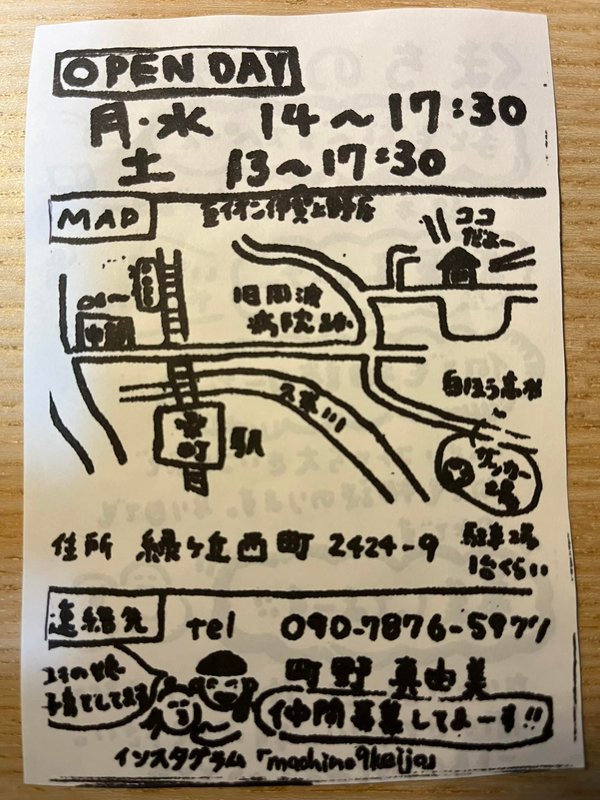 OPEN DAY
月・水 14〜17:30
土 13〜17:30
MAP
ココ
だよー
旧岡波
病院
茅町
駅
久米川
白ほう高校
サッカー
場
住所 緑ヶ丘西町 2424-9
駐車場
1台くらい
連絡先 tel 090-7876-5977
町野 真由美
仲間募集してまーす!!
インスタグラム